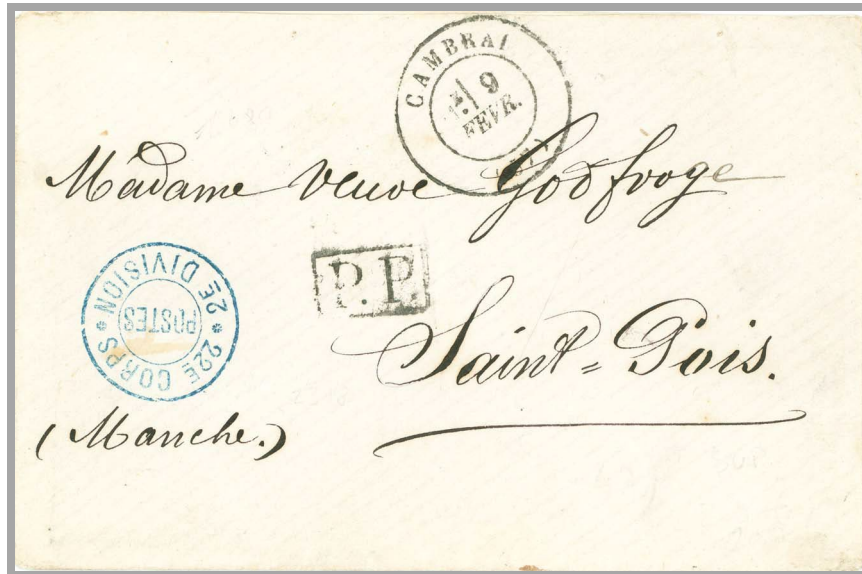 CAMBRAI
9
FEVR.
Madame Veuve Godfroye
P.P.
22E CORPS * 2E DIVISION *
POSTES
Saint=Pois.
(Manche.)